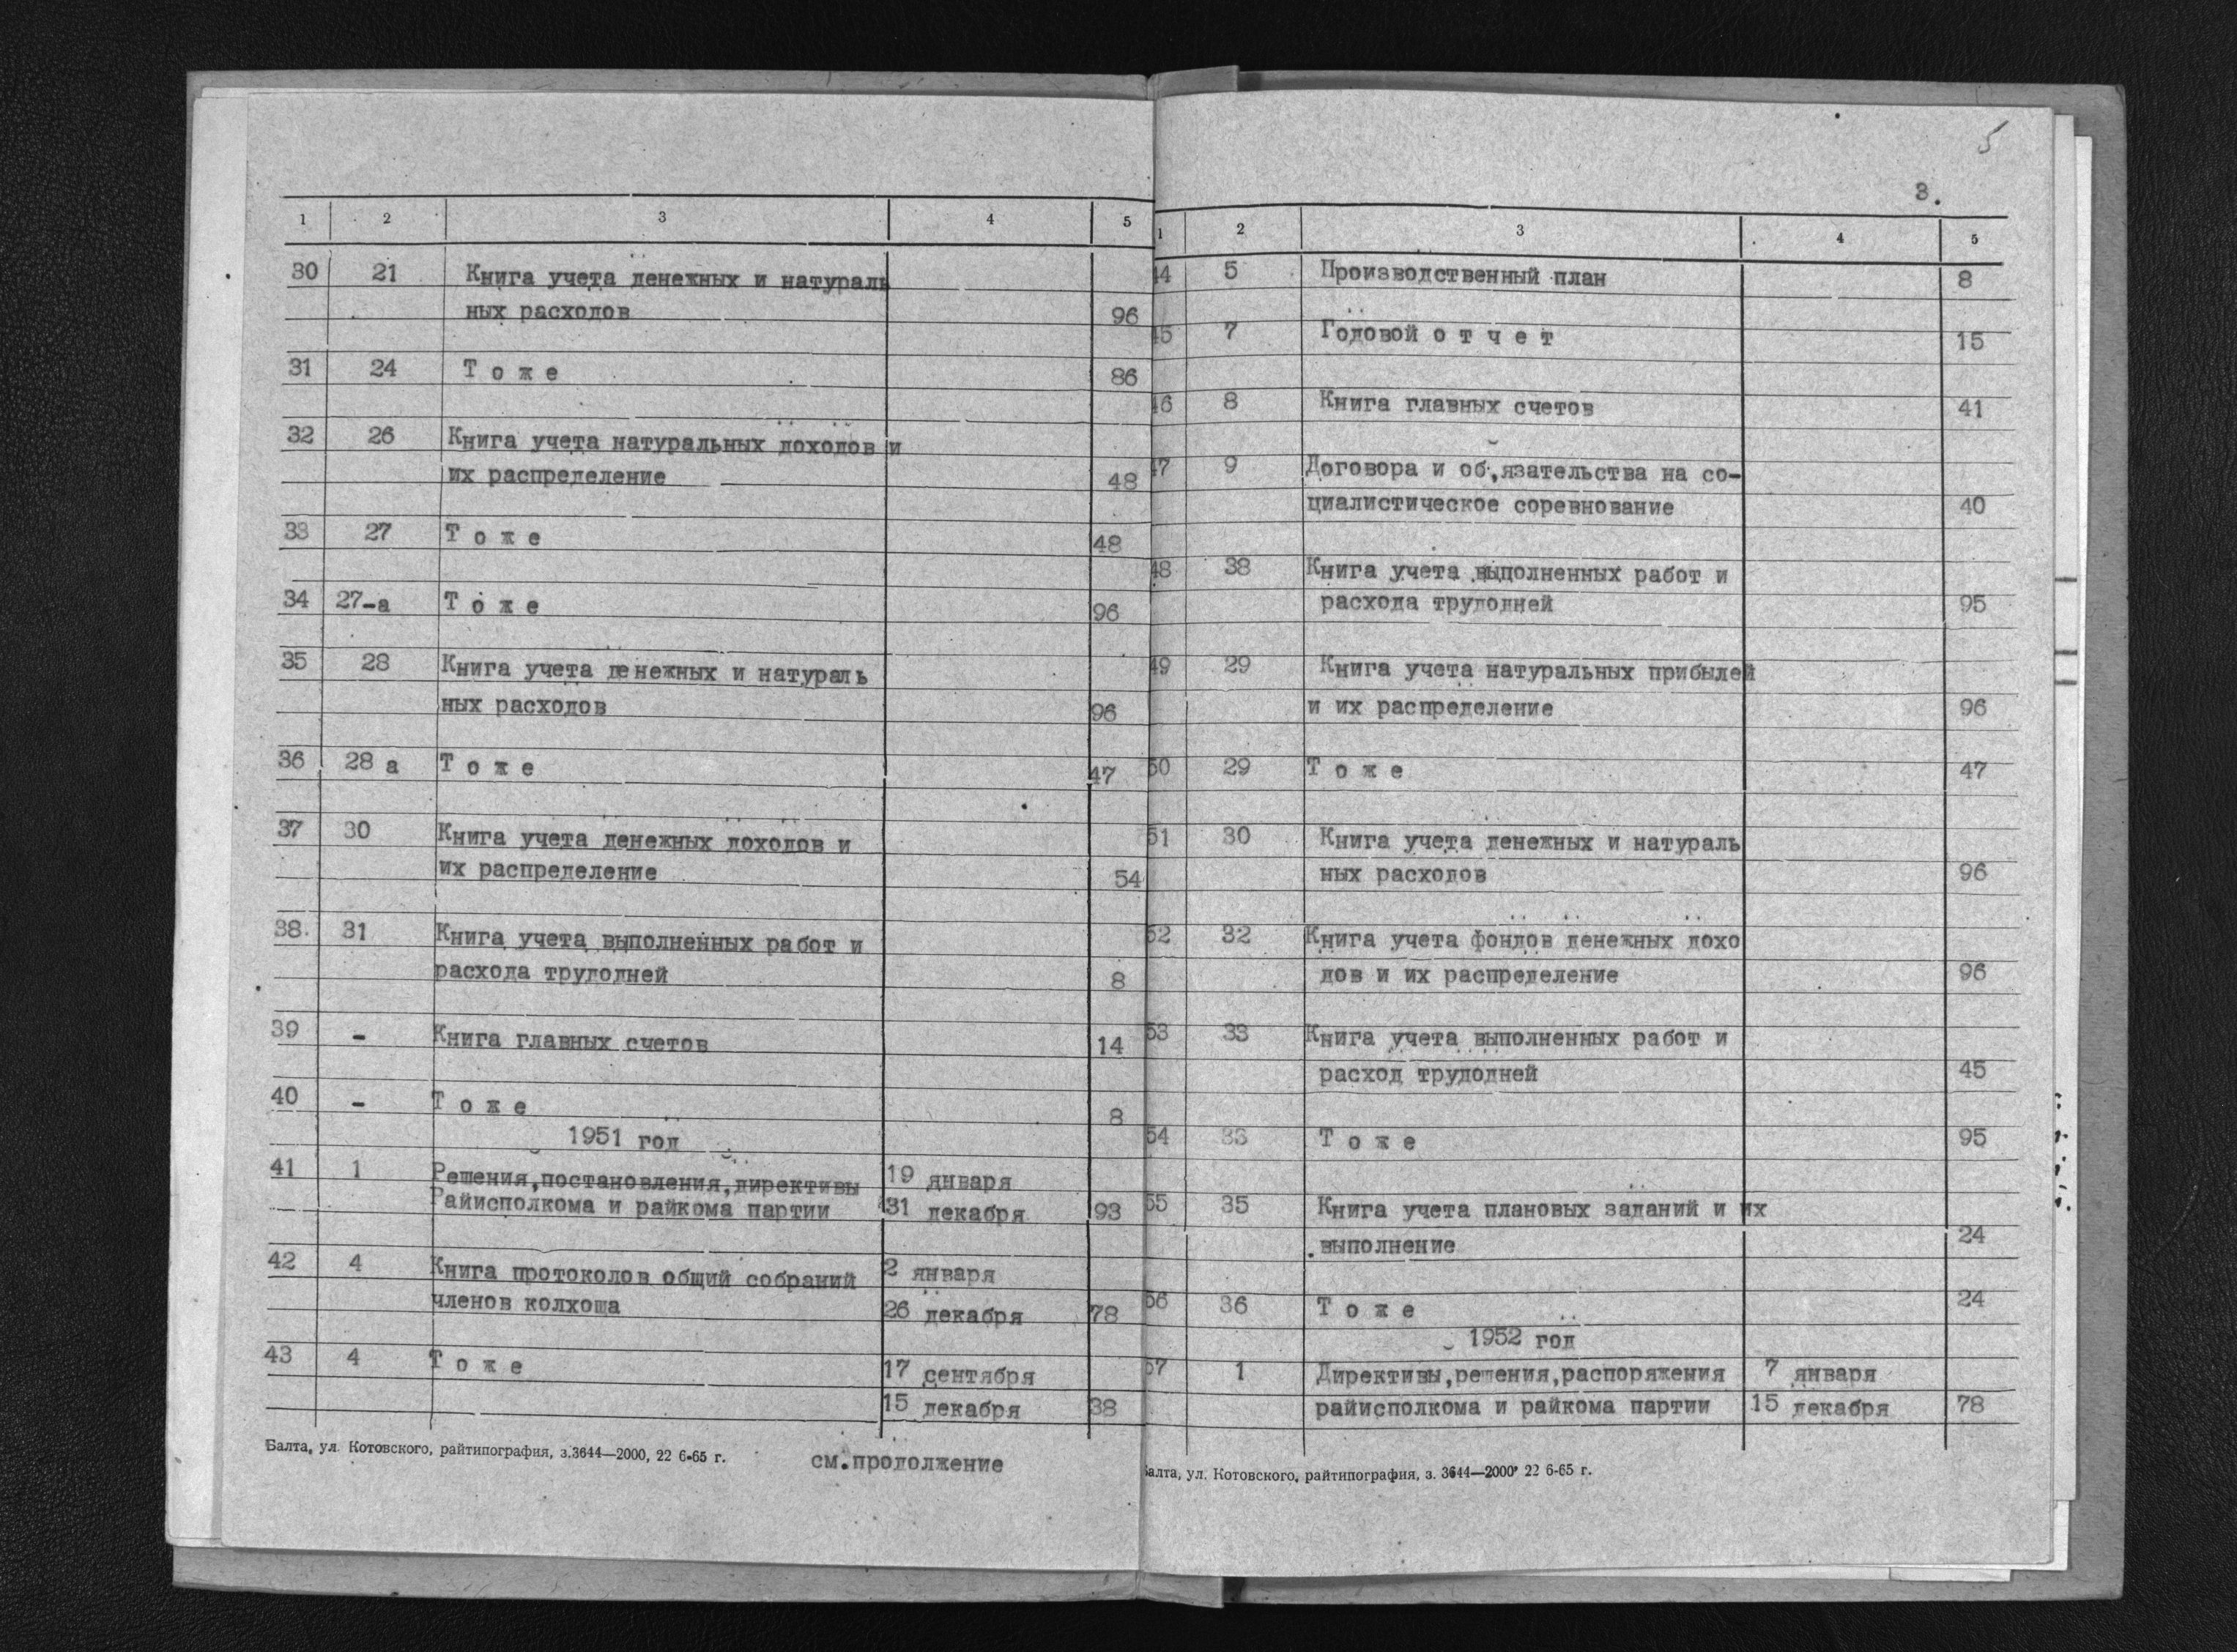 1 2 3 4 5
30 21 Книга учета денежных и натураль
ных расходов 96
31 24 Т о ж е 86
32 26 Книга учета натуральных доходов и
их распределение 48
33 27 Т о ж е 48
34 27-а Т о ж е 96
35 28 Книга учета денежных и натураль
ных расходов 96
36 28 а Т о ж е 47
37 30 Книга учета денежных доходов и
их распределение 54
38. 31 Книга учета выполненных работ и
расхода трудодней 8
39 - Книга главных счетов 14
40 - Т о ж е 8
1951 год
41 1 Решения,постановления,директивы 19 января
Райисполкома и райкома партии 31 декабря 93
42 4 Книга протоколов общий собраний 2 января
членов колхоща 26 декабря 78
43 4 Т о ж е 17 сентября
15 декабря 38
Балта, ул. Котовского, райтипография, з.3644—2000, 22 6-65 г.
см.продолжение
5
3.
1 2 3 4 5
44 5 Производственный план 8
45 7 Годовой о т ч е т 15
46 8 Книга главных счетов 41
47 9 Договора и об,язательства на со-
циалистическое соревнование 40
48 38 Книга учета выполненных работ и
расхода трудодней 95
49 29 Книга учета натуральных прибылей
и их распределение 96
50 29 Т о ж е 47
51 30 Книга учета денежных и натураль
ных расходов 96
52 32 Книга учета фондов денежных дохо
дов и их распределение 96
53 33 Книга учета выполненных работ и
расход трудодней 45
54 33 Т о ж е 95
55 35 Книга учета плановых заданий и их
выполнение 24
56 36 Т о ж е 24
1952 год
57 1 Директивы,решения,распоряжения 7 января
райисполкома и райкома партии 15 декабря 78
алта, ул. Котовского, райтипография, з. 3644—2000, 22 6-65 г.